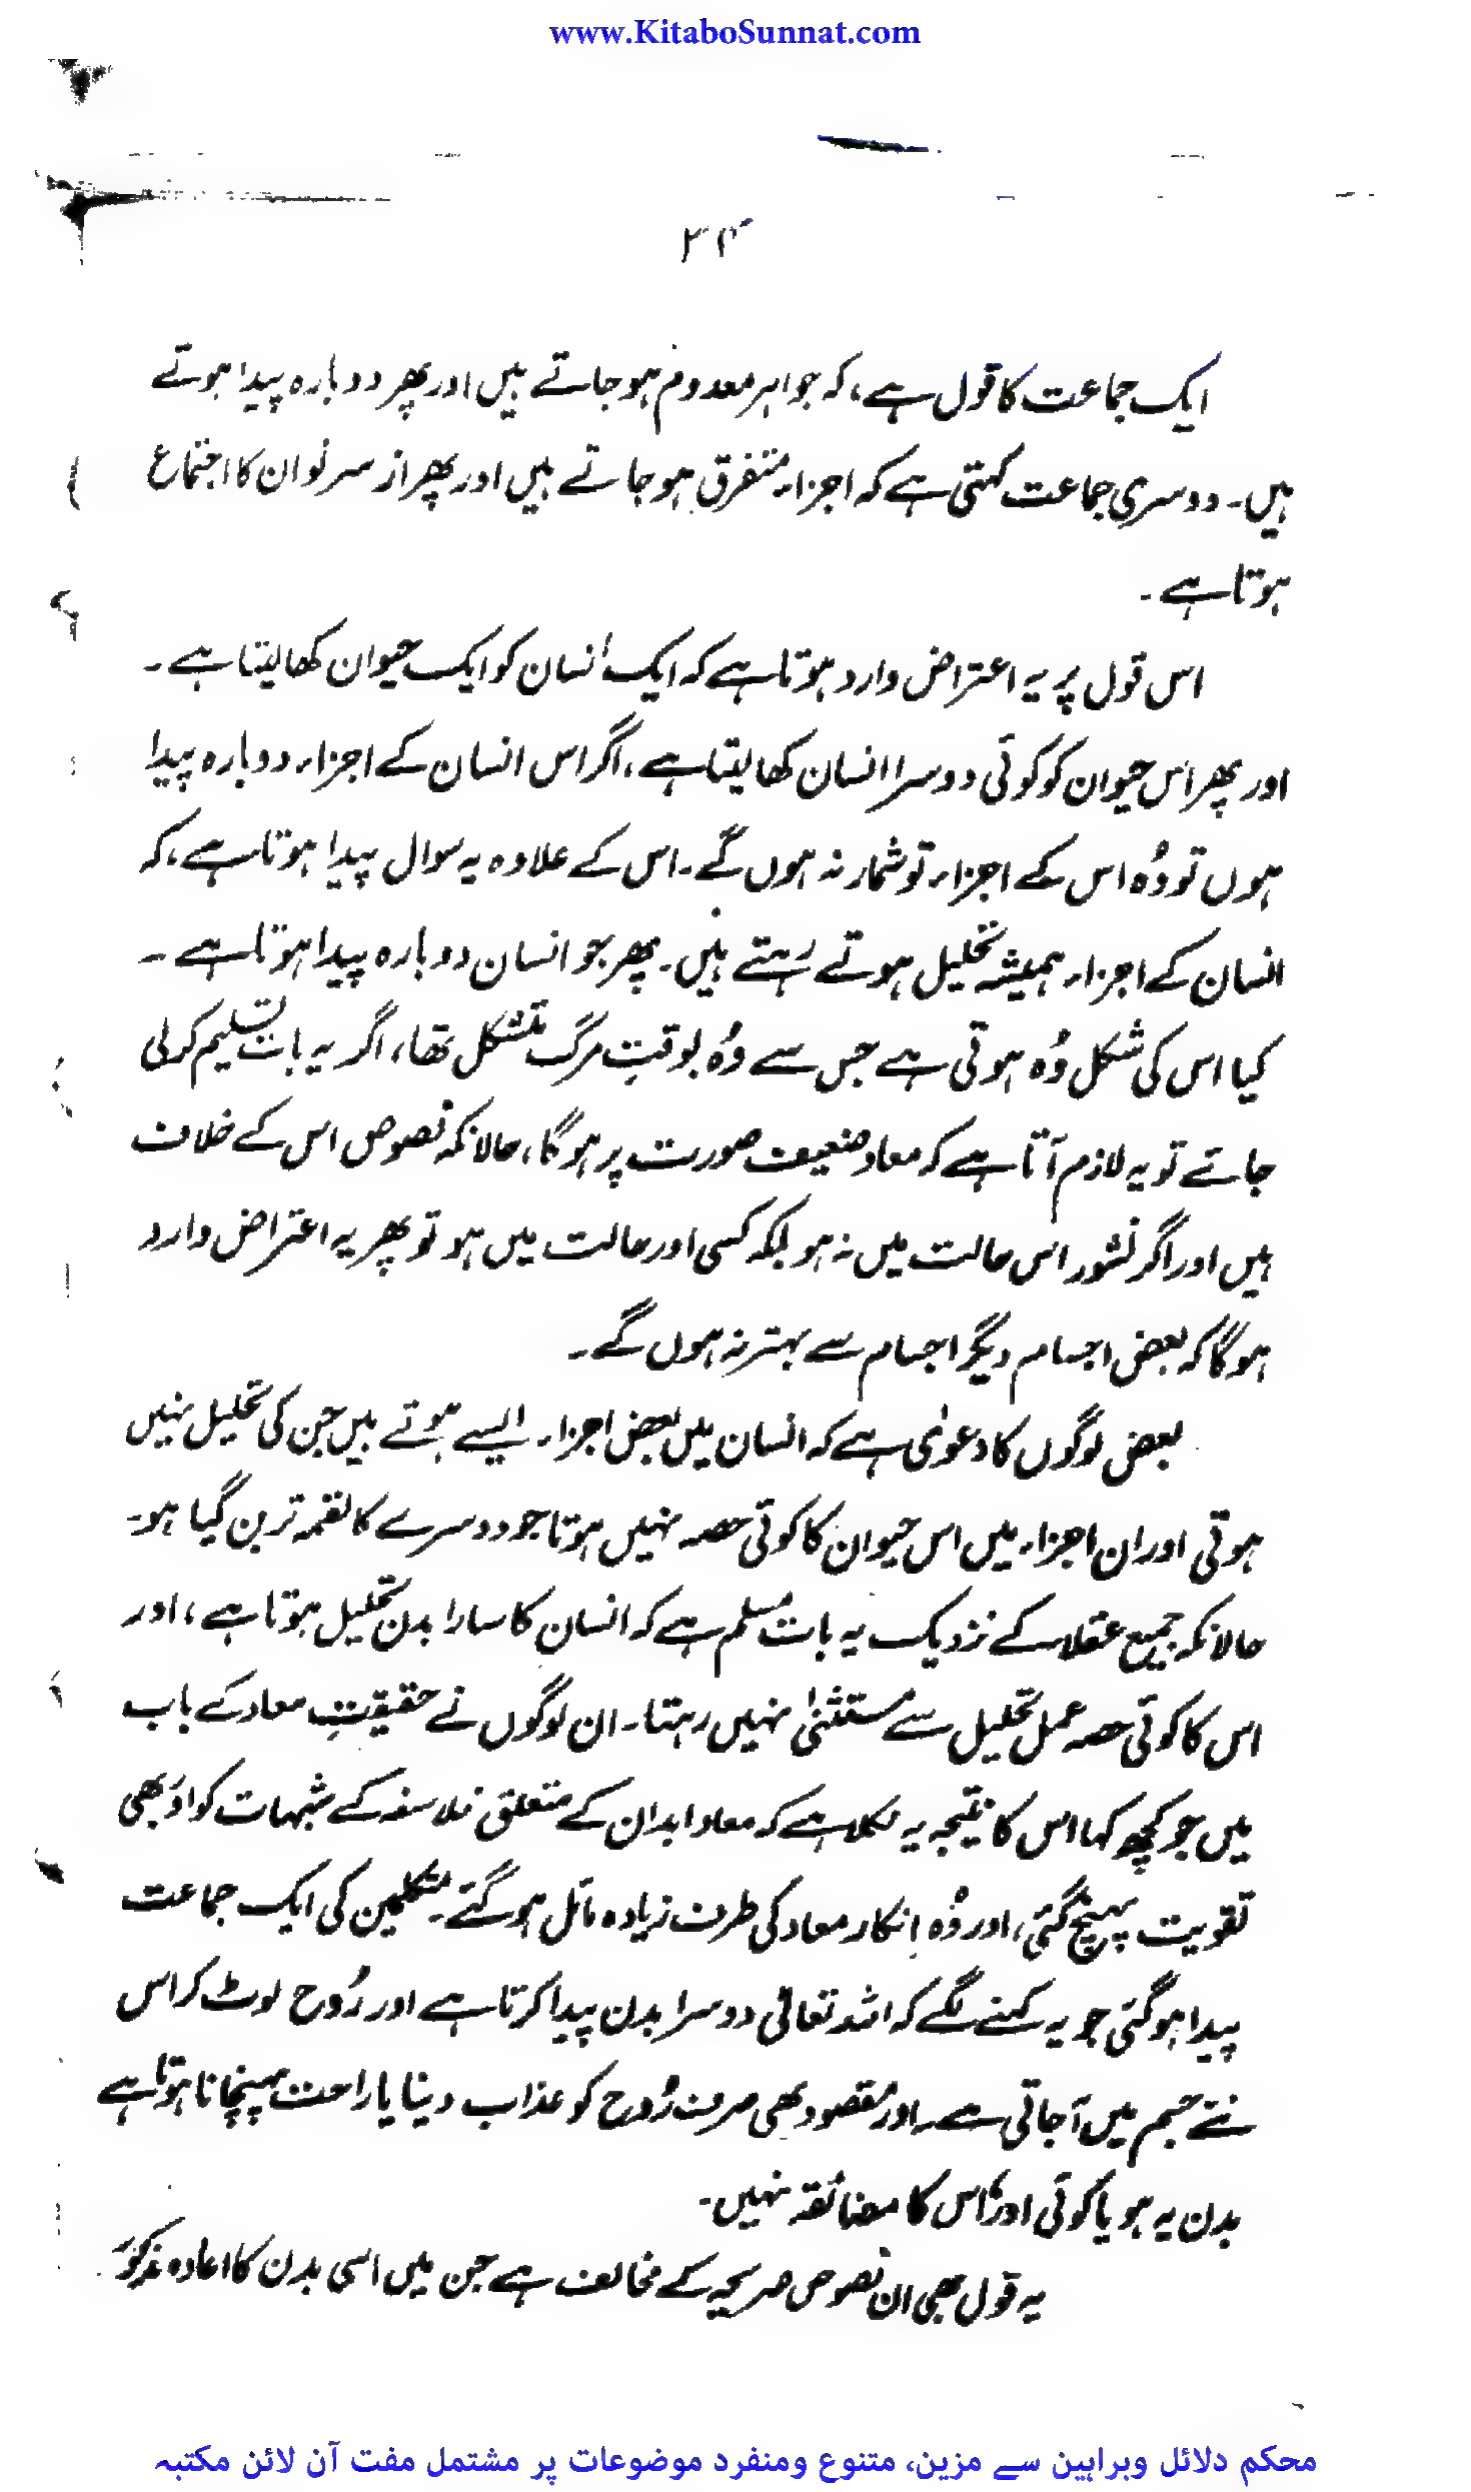 www.KitaboSunnat.com
ایک جماعت کا قول ہے، کہ جواہر معدوم ہو جاتے ہیں اور پھر دوبارہ پیدا ہوتے
ہیں۔ دوسری جماعت کہتی ہے کہ اجزاء متفرق ہو جاتے ہیں اور پھر از سرِ نو ان کا اجتماع
ہوتا ہے۔
اس قول پر یہ اعتراض وارد ہوتا ہے کہ ایک انسان کو ایک حیوان کھا لیتا ہے۔
اور پھر اس حیوان کو کوئی دوسرا انسان کھا لیتا ہے، اگر اس انسان کے اجزاء دوبارہ پیدا
ہوں تو وُہ اس کے اجزاء تو شمار نہ ہوں گے۔ اس کے علاوہ یہ سوال پیدا ہوتا ہے، کہ
انسان کے اجزاء ہمیشہ تحلیل ہوتے رہتے ہیں۔ پھر جو انسان دوبارہ پیدا ہوتا ہے۔
کیا اس کی شکل وُہ ہوتی ہے جس سے وُہ بوقتِ مرگ متشکل تھا، اگر یہ بات تسلیم کر لی
جائے تو یہ لازم آتا ہے کہ معاد ضعیف صورت پر ہوگا، حالانکہ نصوص اس کے خلاف
ہیں اور اگر نشور اس حالت میں نہ ہو بلکہ کسی اور حالت میں ہو تو پھر یہ اعتراض وارد
ہوگا کہ بعض اجسام دیگر اجسام سے بہتر نہ ہوں گے۔
بعض لوگوں کا دعویٰ ہے کہ انسان میں بعض اجزاء ایسے ہوتے ہیں جن کی تحلیل نہیں
ہوتی اور ان اجزاء میں اس حیوان کا کوئی حصہ نہیں ہوتا جو دوسرے کا لقمہ تر بن گیا ہو۔
حالانکہ جمیع عقلاء کے نزدیک یہ بات مسلم ہے کہ انسان کا سارا بدن تحلیل ہوتا ہے، اور
اس کا کوئی حصہ عمل تحلیل سے مستثنیٰ نہیں رہتا۔ ان لوگوں نے حقیقتِ معاد کے باب
میں جو کچھ کہا اس کا نتیجہ یہ نکلا ہے کہ معاد ابدان کے متعلق فلاسفہ کے شبہات کو اور بھی
تقویت پہنچ گئی، اور وُہ انکار معاد کی طرف زیادہ مائل ہو گئے۔ متکلمین کی ایک جماعت
پیدا ہو گئی جو یہ کہنے لگے کہ اللہ تعالیٰ دوسرا بدن پیدا کرتا ہے اور رُوح لوٹ کر اس
نئے جسم میں آ جاتی ہے۔ اور مقصود بھی صرف رُوح کو عذاب دینا یا راحت پہنچانا ہوتا ہے
بدن یہ ہو یا کوئی اور، اس کا مضائقہ نہیں۔
یہ قول بھی ان نصوص صریحہ کے مخالف ہے جن میں اسی بدن کا اعادہ مذکور
محکم دلائل وبراہین سے مزین، متنوع ومنفرد موضوعات پر مشتمل مفت آن لائن مکتبہ